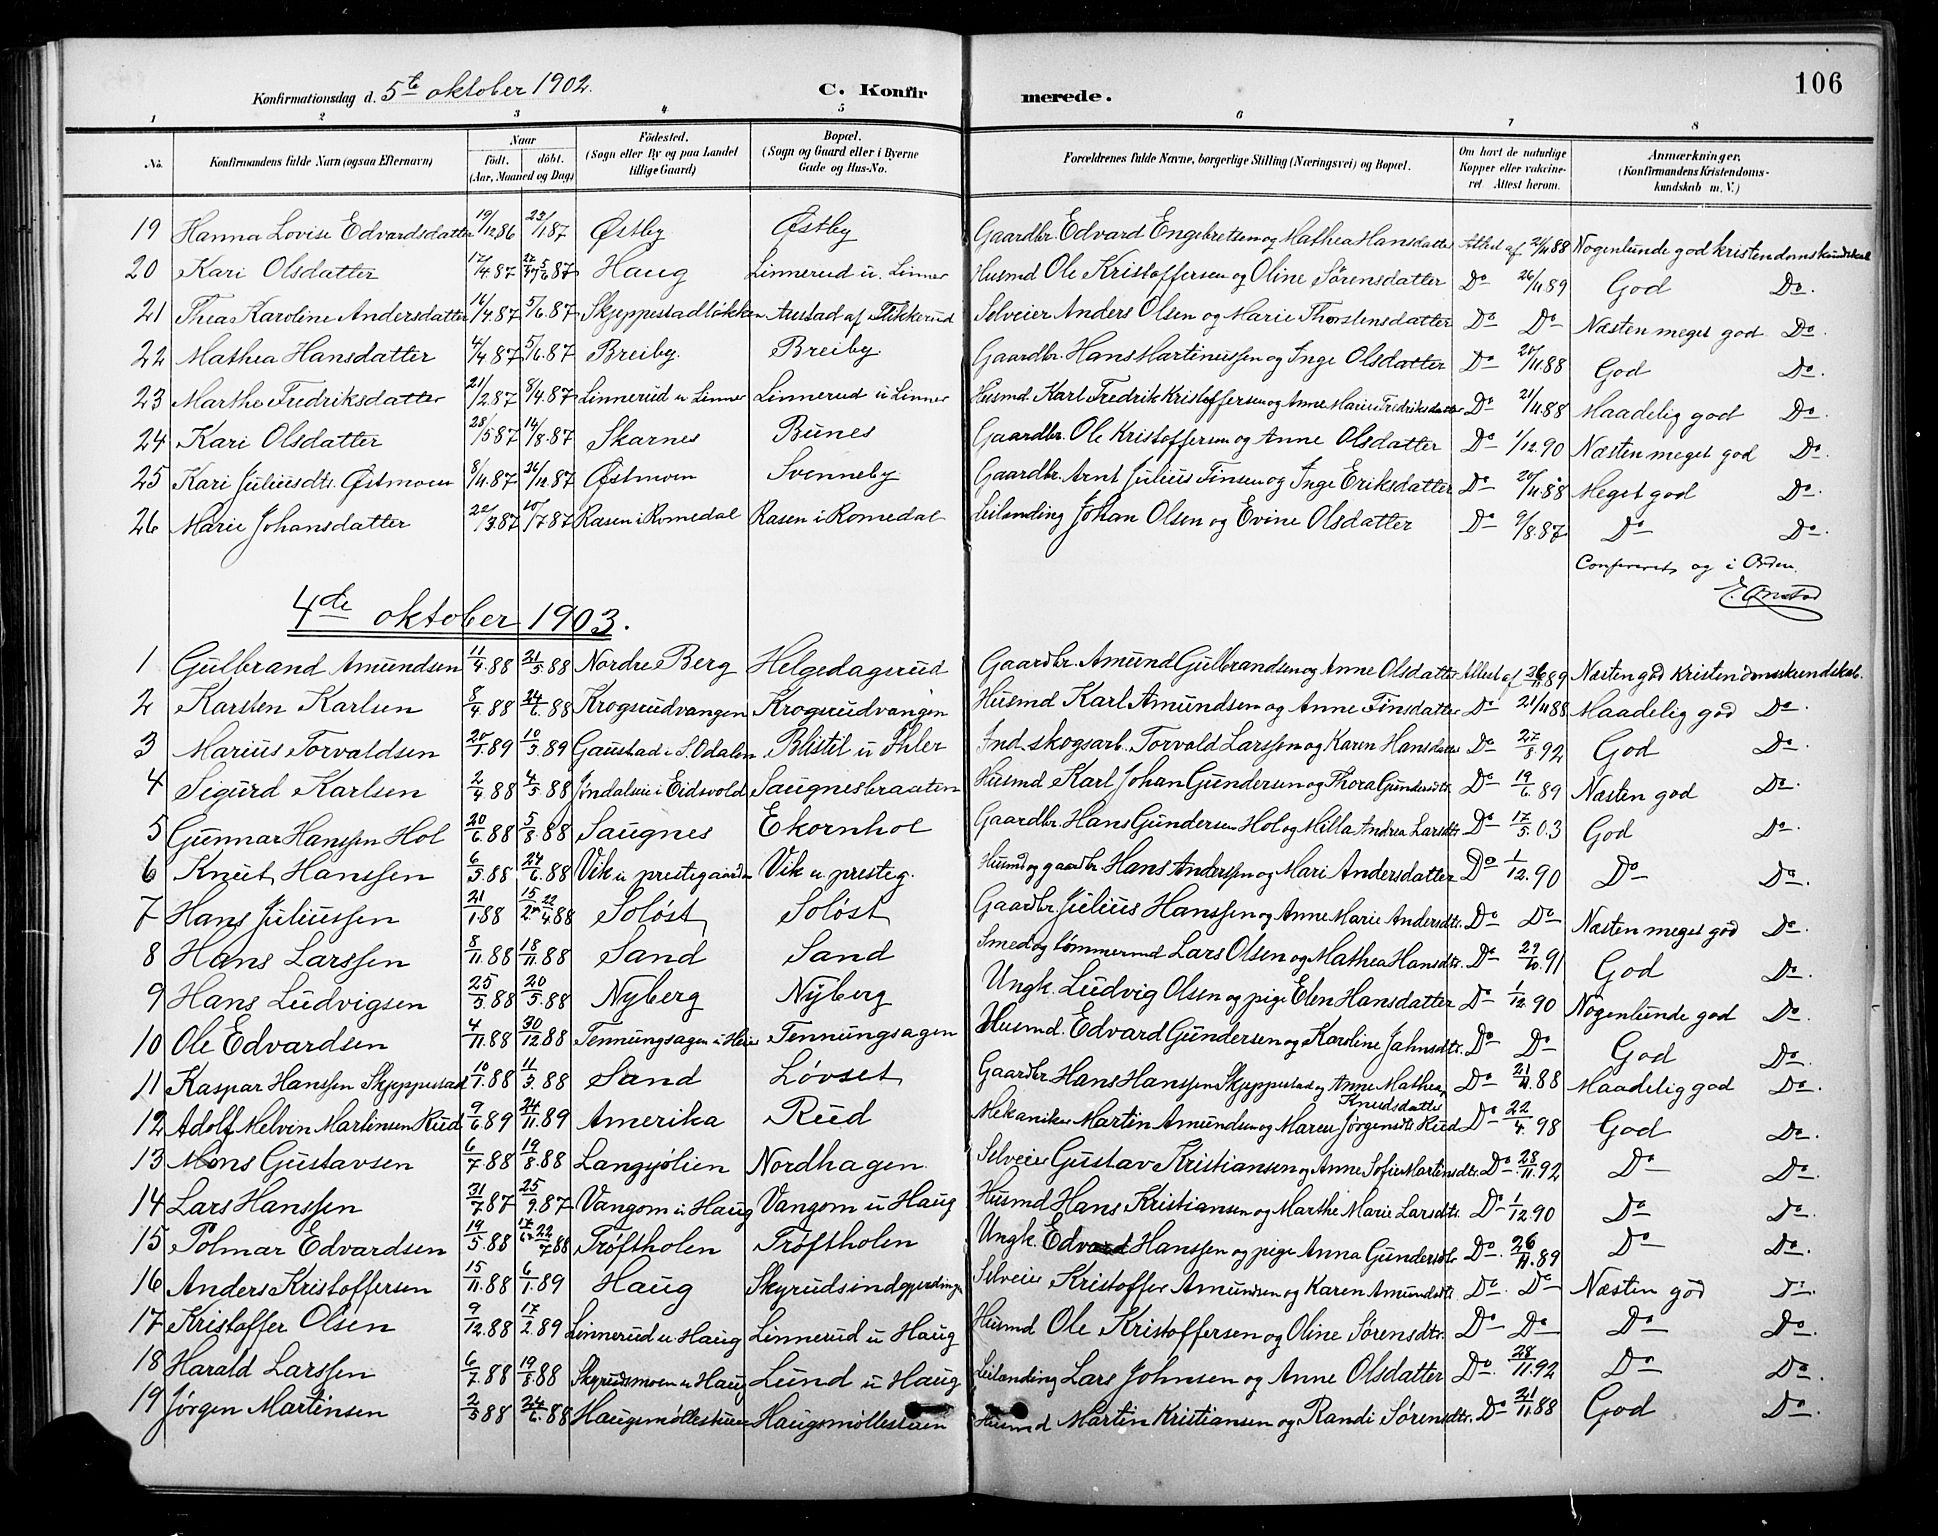 106
Konfirmationsdag d. 5te oktober 1902. C. Konfirmerede.
1 2 3 4 5 6 7 8
No. Konfirmandens fulde Navn (ogsaa Efternavn) Naar født. døbt. (Aar, Maaned og Dag) Födested. (Sogn eller By og paa Landet tillige Gaard) Bopæl. (Sogn og Gaard eller i Byerne Gade og Hus-No. Forældrenes fulde Navne, borgerlige Stilling (Næringsvei) og Bopæl. Om havt de naturlige Kopper eller vaccineret. Attest herom. Anmærkninger. (Konfirmandens Kristendomskundskab m. V.)
19 Hanna Lovise Edvardsdatter 19/12 86 23/1 87 Østby Østby Gaardbr. Edvard Engebretsen og Mathea Hansdatter Attest af 21/11 88 Nogenlunde god kristendomskundskab
20 Kari Olsdatter 17/4 87 5/6 87 Haug Linnerud u. Linner Husmd Ole Kristoffersen og Oline Sørensdatter Do 26/11 89 God Do.
21 Thea Karoline Andersdatter 16/4.87 5/6.87 Skjeppestadløkken Austad af Flikkerud Selveier Anders Olsen og Marie Thorstensdatter Do Do Næsten meget god Do.
22 Mathea Hansdatter 4/4 87 5/6.87 Breiby. Breiby. Gaardbr. Hans Martinussen og Inge Olsdatter Do 20/11.88 God Do.
23 Marthe Fredriksdatter 21/2 87 8/4.87 Linnerud u Linner Linnerud u Linner Husmd Karl Fredrik Kristoffersen og Anne Marie Fredriksdatter Do 21/11 88 Maadelig god Do.
24 Kari Olsdatter 28/5 87 14/8.87 Skarnes Bunes Gaardbr. Ole Kristoffersen og Anne Olsdatter Do 1/12.90 Næsten meget god Do.
25 Kari Juliusdtr. Østmoen 8/11.87 26/12.87 Østmoen Svenneby. Gaardbr. Arnt Julius Finsen og Inge Eriksdatter Do 20/11.88 Meget god Do.
26 Marie Johansdatter 22/3 87 10/7 87 Rasen i Romedal Rasen i Romedal Leilending Johan Olsen og Evine Olsdatter Do 9/8.87 Do Do.
Confereret og i Orden.
4de oktober 1903.
1 Gulbrand Amundsen 11/4.88 21/5 88 Nordre Berg Helgedagsrud Gaardbr. Amund Gulbrandsen og Anne Olsdatter Attest af 26/11 89 Næsten god Kristendomskundskab.
2 Karsten Karlsen 8/4.88 24/6.88 Krogsrudvangen Krogsrudvangen Husmd Karl Amundsen og Anne Finsdatter Do 21/11 88 Maadelig god Do.
3 Marius Torvaldsen 20/1.89 10/3.89 Gaustad i S. Odalen Blistil u Ihler Ind. skogsarb. Torvald Larssen og Karen Hansdatter Do 27/8.92 God Do.
4 Sigurd Karlsen 2/4.88 4/5.88 Jøndalseie i Eidsvold Saugnesbraaten Husmd Karl Johan Gundersen og Thora Gundersdtr. Do 19/6.89 Næsten god Do.
5 Gunnar Hanssen Hol 20/6.88 5/8.88 Saugnes Ekornhol Gaardbr. Hans Gundersen Hol og Milla Andrea Larsdtr. Do 17/5.03 God Do.
6 Knut Hanssen 6/5.88 24/6.88 Vik u prestegaarden Vik u presteg. Husmd og gaardbr. Hans Anderssen og Mari Andersdatter Do 1/12.90 Do Do.
7 Hans Juliussen 21/1.88 15/2 22/4.88 Soløst Soløst Gaardbr. Julius Hanssen og Anne Marie Andersdtr. Do Do Næsten meget god Do.
8 Hans Larssen 8/11.88 18/11.88 Sand Sand Smed og tømmermd Lars Olsen og Mathea Hansdtr. Do 29/10.91 God Do.
9 Hans Ludvigsen 25/3.88 20/5.88 Nyberg Nyberg Ungk. Ludvig Olsen og pige Elen Hansdatter Do 1/12.90 Nogenlunde god Do.
10 Ole Edvardsen 4/11.88 30/12 88 Tennungsagen Tennungsagen Husmd. Edvard Gundersen og Karoline Jahnsdtr. Do Do God Do.
11 Kaspar Hanssen Skjeppestad 10/1.88 11/3.88 Sand Løvset Gaardbr Hans Hanssen Skjeppestad og Anne Mathea Knudsdatter Do 21/11.88 Maadelig god Do.
12 Adolf Melvin Martinsen Rud 9/6.89 24/11.89 Amerika Rud Mekaniker Martin Amundsen og Maren Jørgensdtr Rud Do 22/4.98 God Do.
13 Mons Gustavsen 6/7.88 19/8.88 Langjølien Nordhagen. Selveier Gustav Kristiansen og Anne Sofie Martinsdtr. Do 28/11.92 Do Do.
14 Lars Hanssen 31/7 87 25/9.87 Vangom u Haug Vangom u Haug Husmd Hans Kristiansen og Marthe Marie Larsdtr. Do 1/12 90 Do Do.
15 Polmar Edvardsen 19/5.88 22/7 88 Trøftholen Trøftholen Ungk. Edvard Hanssen og pige Anna Gundersdtr Do. 26/11.89 Do Do.
16 Anders Kristoffersen 15/11.88 6/1.89 Haug Selveier Kristoffer Amundsen og Karen Amundsdtr Do. Do Næsten god Do.
17 Kristoffer Olsen 9/12.88 17/2.89 Linnerud u. Haug Linnerud u Haug Husmd Ole Kristoffersen og Oline Sørensdtr. Do Do Do Do.
18 Harald Larssen 6/7.88 19/8.88 Skyrudsmoen u Haug Lund u Haug Leilending Lars Johnsen og Anne Olsdatter Do. 28/11.92 Do Do.
19 Jørgen Martinsen 2/5 88 24/6.88 Haugsmøllestuen Haugsmøllestuen Husmd Martin Kristiansen og Randi Sørensdtr. Do 21/11.88 God Do.